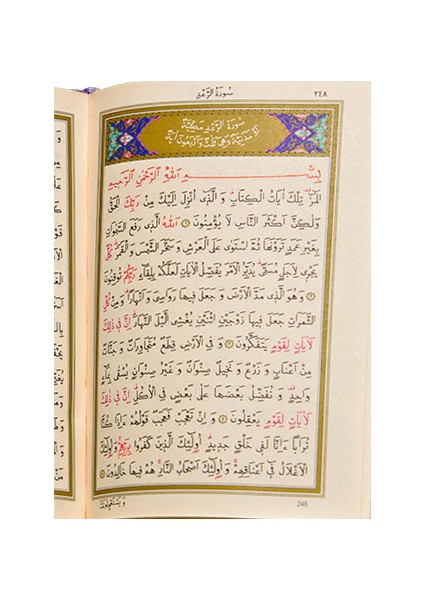 سورة الرعد
٢٤٨
سورة الرعد مكية
بسم الله الرحمن الرحيم
المر تلك آيات الكتاب و الذى انزل اليك من ربك الحق
ولكن اكثر الناس لا يؤمنون الله الذى رفع السموات
بغير عمد ترونها ثم استوى على العرش و سخر الشمس و القمر كل
يجرى لاجل مسمى يدبر الامر يفصل الآيات لعلكم بلقاء ربكم توقنون
و هو الذى مد الارض و جعل فيها رواسى و انهارا و من كل
الثمرات جعل فيها زوجين اثنين يغشى الليل النهار ان فى ذلك
لآيات لقوم يتفكرون و فى الارض قطع متجاورات و جنات
من اعناب و زرع و نخيل صنوان و غير صنوان يسقى بماء
واحد و نفضل بعضها على بعض فى الاكل ان فى ذلك
لآيات لقوم يعقلون و ان تعجب فعجب قولهم ءاذا كنا
ترابا ءانا لفى خلق جديد اولئك الذين كفروا بربهم و اولئك
الاغلال فى اعناقهم و اولئك اصحاب النار هم فيها خالدون
ويستعجلونك
248